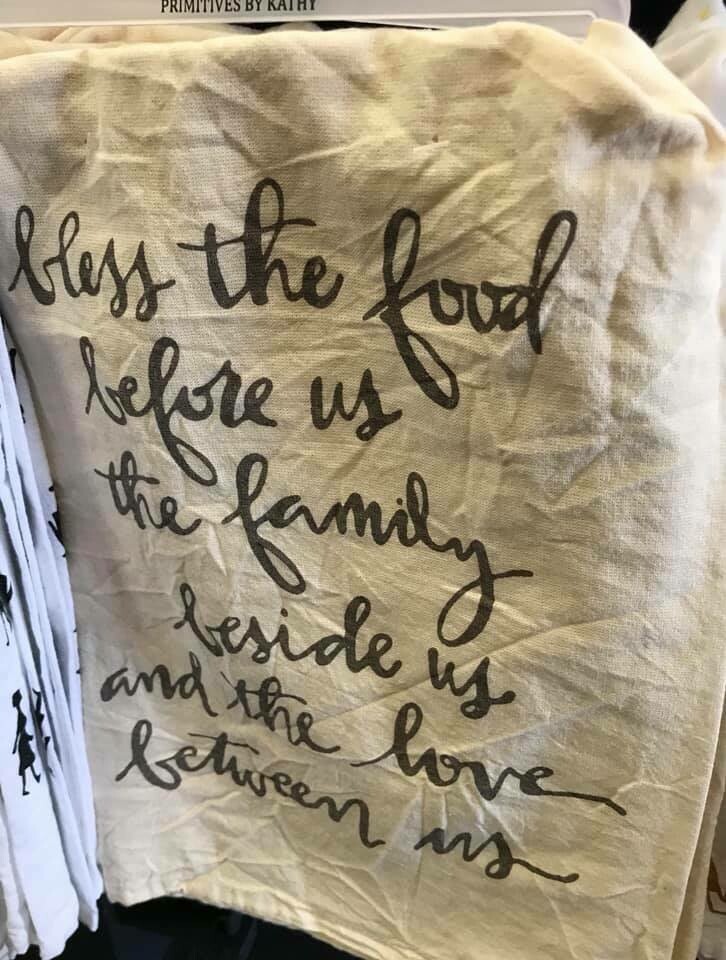 PRIMITIVES BY KATHY
bless the food
before us
the family
beside us
and the love
between us